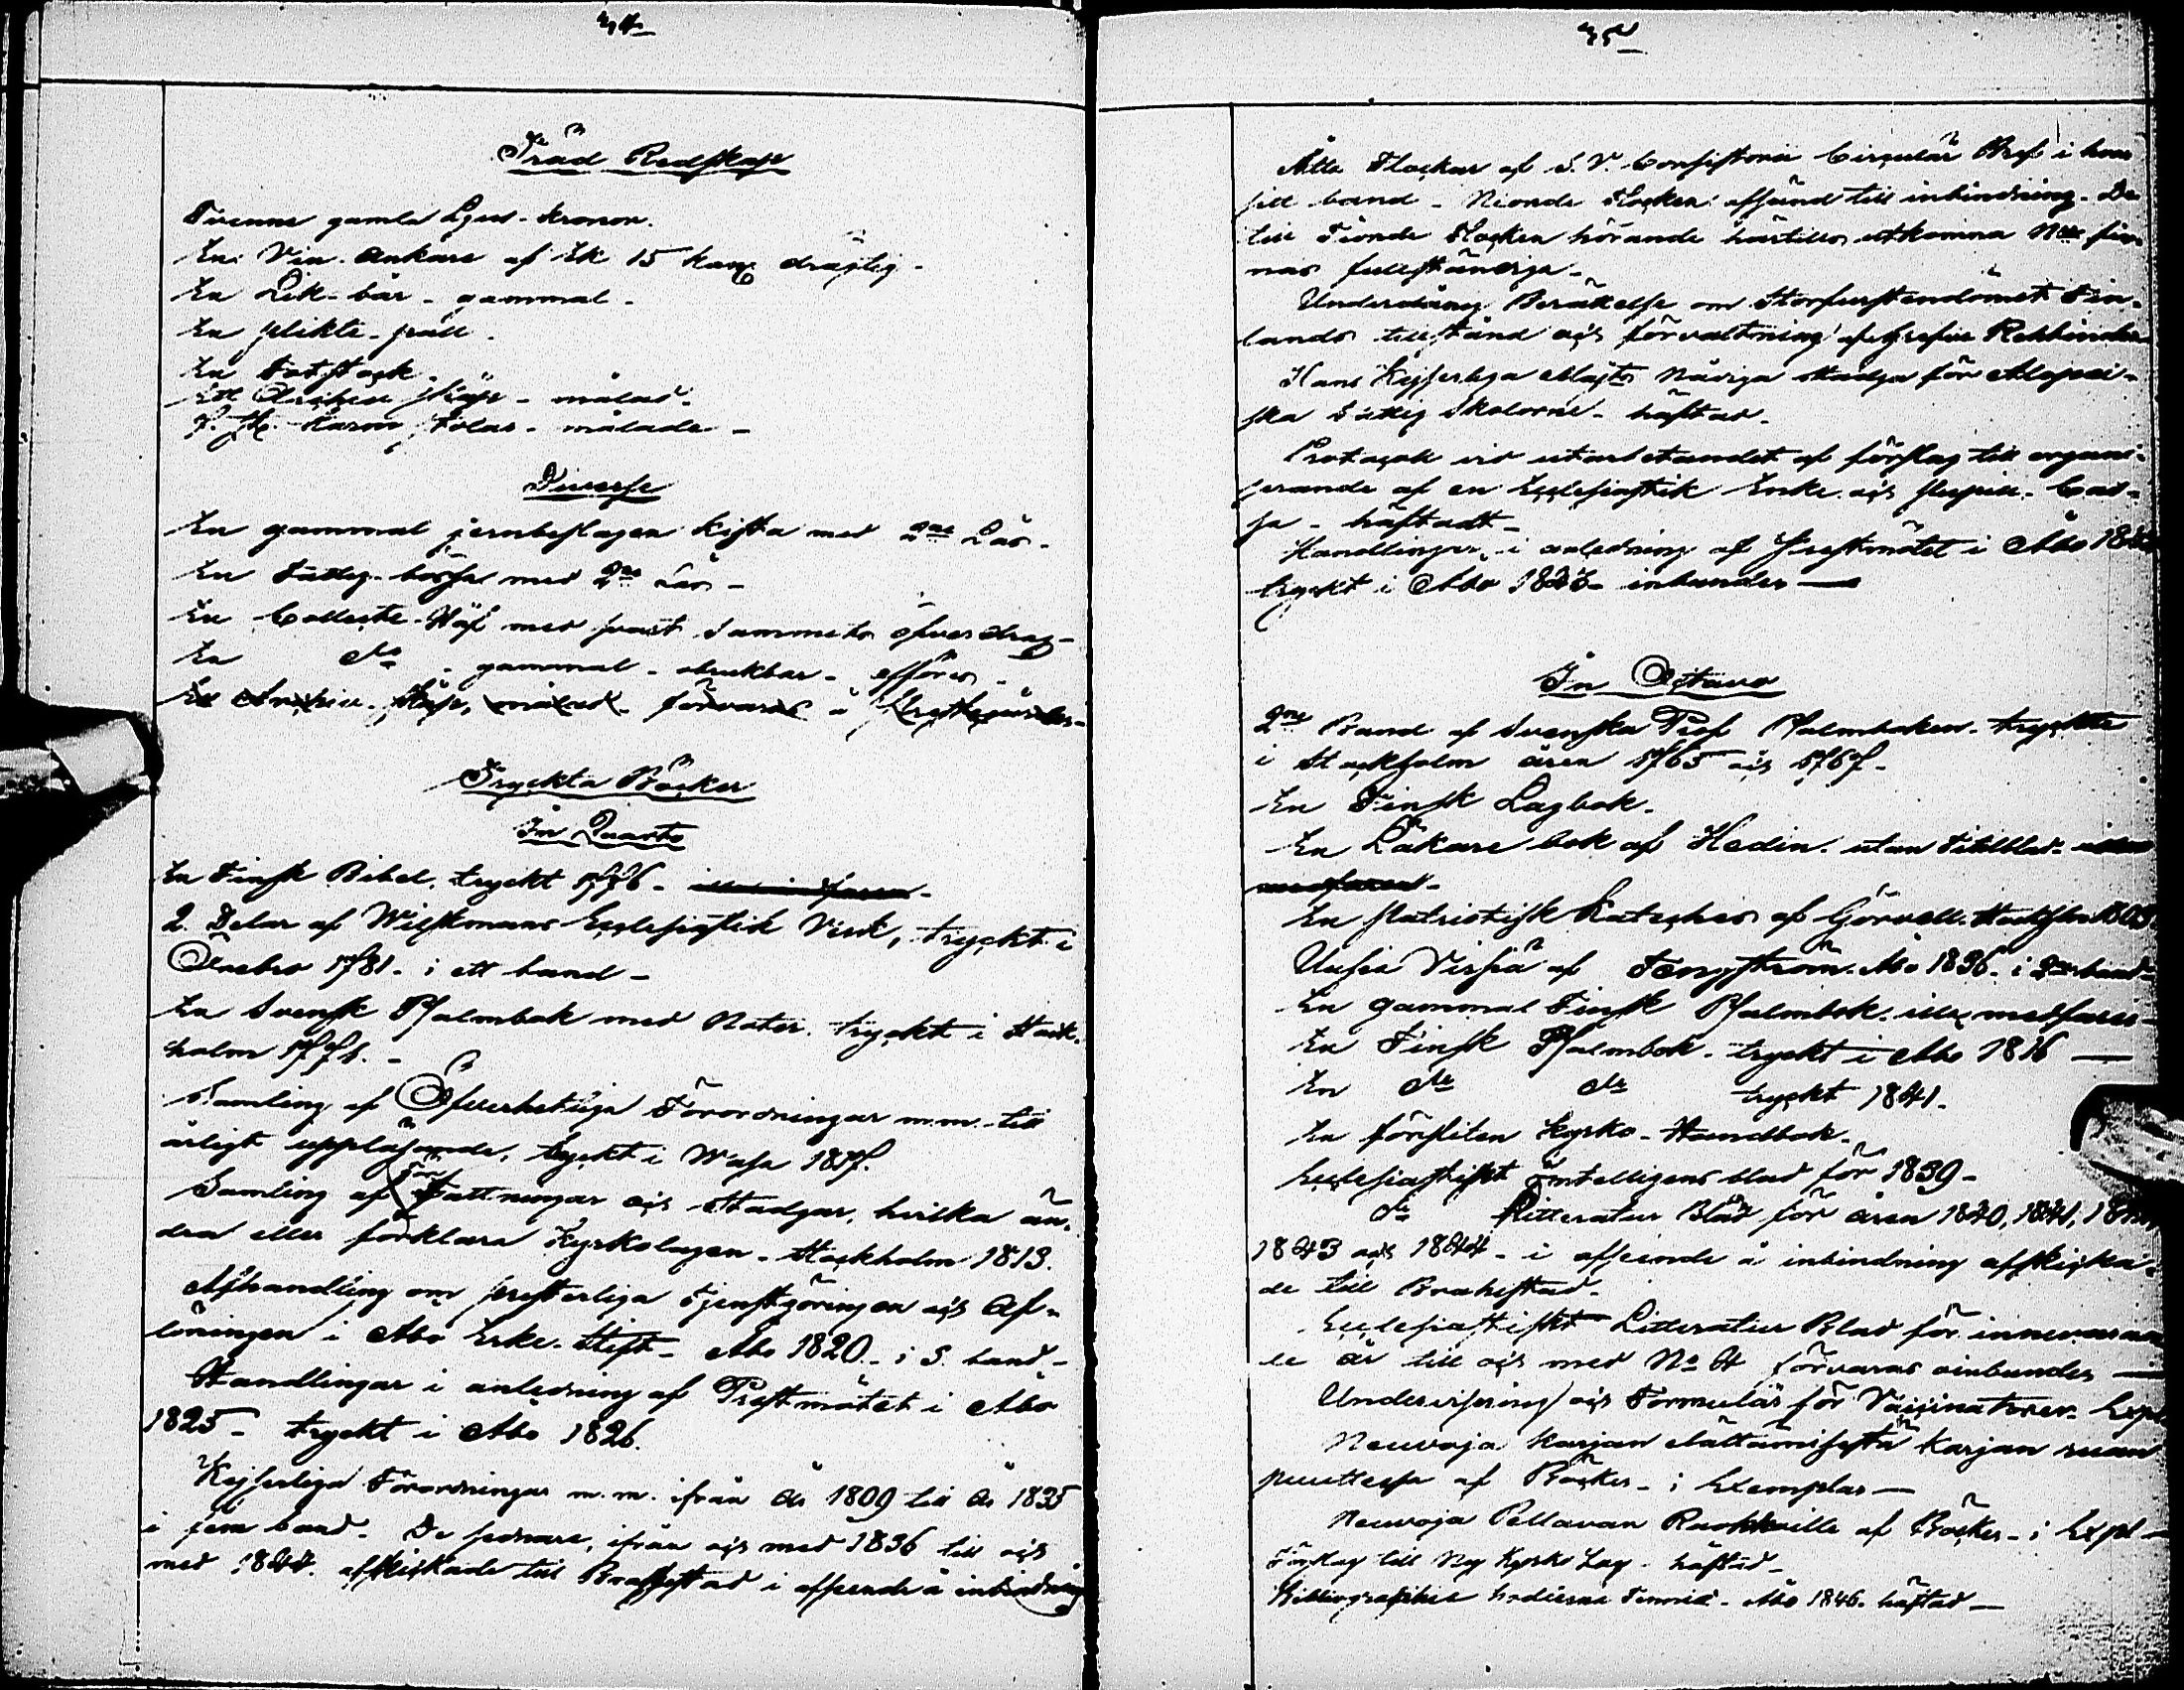 34
Träd Redskap
Tvenne gamla Ljus-kronor.
En Vin-Ankare af Ek 15 kan: drägtig.
En Lik-bår - gammal.
En plikte-pall.
En Fotstock.
Ett Archiv skåp - målad.
7. st: Karm stolar - målade -
Diverse
En gammal jernbeslagen kista med 2ne Lås.
En Fattig-bössa med 2ne Lås -
En Collecte-Håf med svart Sammets öfverdrag -
En do - gammal - obrukbar - afföres -
Ett Archiv-skåp, målad - förvaras i Prestegården -
Tryckta Böcker
In Quarto
En Finsk Bibel, tryckt 1776 -
2. Delar af Wilskmans Ecclesiastik Verk, tryckt i
Örebro 1781. i ett band -
En Svensk Psalmbok med Noter. tryckt i Stock-
holm 1771. -
Samling af Öfverhetliga Förordningar m.m. till
årligt uppläsande, tryckt i Wasa 1817.
Samling af Författningar och Stadgar, hvilka än-
dra eller förklara Kyrkolagen - Stockholm 1813.
Afhandling om presterliga Tjenstgöringen och Af-
löningen i Åbo Erke-Stift - Åbo 1820 - i S. band -
Handlingar i anledning af Prestmötet i Åbo
1825 - tryckt i Åbo 1826.
Kejserliga Förordningar m.m. ifrån år 1809 till år 1835
i fem band. De sednare, ifrån och med 1836 till och
med 1844. afskickade till Brahestad i afseende å inbindning
35
Åtta Flockar af S.V. Consistorii Circulär Bref i hvar
sitt band - Nionde Flocken afsänd till inbindning. De
till Tionde Flocken hörande härtills utkomna N:r fin-
nas fullständiga -
Underdånig Berättelse om Storfurstendömet Fin-
lands tillstånd och förvaltning af Grefve Rehbinder
Hans Kejserliga Majts Nådiga stadga för
ska Fattig Skolorne - häftad.
Protocoll vid utarbetandet af förslag till organi-
serande af en Ecclesiastik Enke och Pupill-Cas-
sa - häftadt -
Handlingar i anledning af Prestmötet i Åbo
tryckt i Åbo - inbunden -
In Octavo
2ne Band af Svenska Prof Psalmboken - tryckte
i Stockholm åren 1765 och 1767 -
En Finsk Lagbok.
En Läkare bok af Hedin. utan Titelblad -
En Patriotisk Kateches af Görvell. Stockholm 1803
Uusia Virsiä af Tengström. Åbo 1836. i 2ne band
En gammal Finsk Psalmbok. illa medfaren -
En Finsk Psalmbok. tryckt i Åbo 1816 -
En do do tryckt 1841.
En försliten Kyrko-Handbok.
Ecclesiastiskt Intelligens blad för 1839 -
do Litteratur Blad för åren 1840, 1841,
1843 och 1844 - i afseende å inbindning afskicka-
de till Brahestad.
Ecclesiastiskt Litteratur Blad för innevaran-
de år till och med No 4 förvaras oinbunden -
Undervisning och Formulär för Vaccinatorer. Expl
Neuvoja Karjan elättämisestä Karjan ruan
puuttessa af Böcker - i Exemplar -
Neuvoja Pellavan Ruokkville af Böcker - i Expl -
Förslag till Ny Kyrko Lag - häftad -
Åbo 1846. häftad -